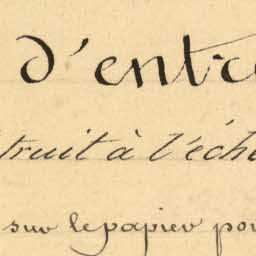 d'entre
truit à l'éche
sur le papier pou